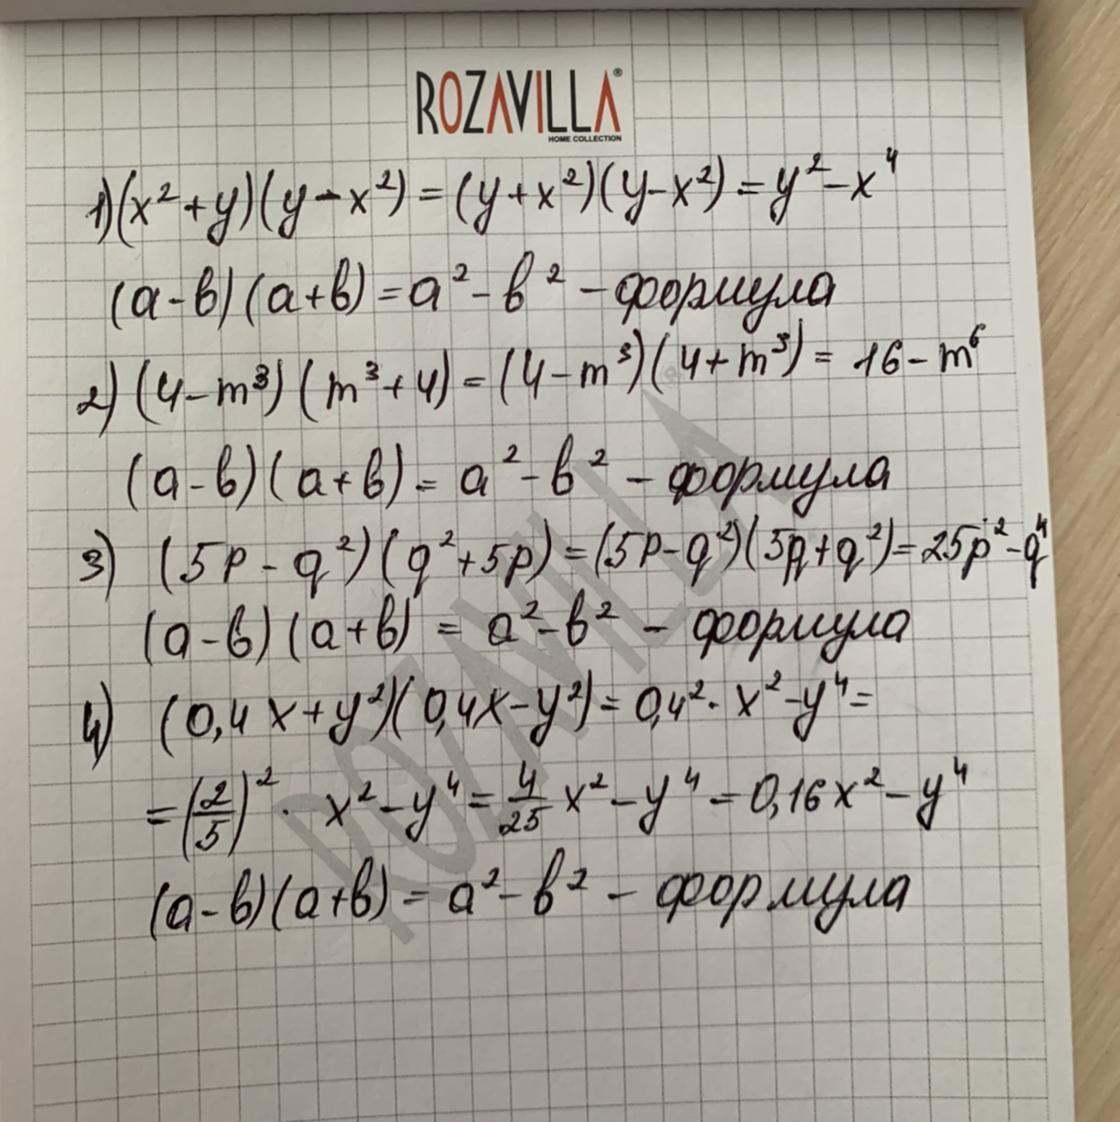 ROZAVILLA®
HOME COLLECTION
1) (x²+y)(y-x²) = (y+x²)(y-x²) = y²-x⁴
(a-в)(a+в) = a²-в² - формула
2) (4-m³)(m³+4) = (4-m³)(4+m³) = 16-m⁶
(a-в)(a+в) = a²-в² - формула
3) (5p-q²)(q²+5p) = (5p-q²)(5p+q²) = 25p²-q⁴
(a-в)(a+в) = a²-в² - формула
4) (0,4x+y²)(0,4x-y²) = 0,4²·x²-y⁴ =
= (2/5)²· x²-y⁴ = 4/25 x²-y⁴ = 0,16x²-y⁴
(a-в)(a+в) = a²-в² - формула
ROZAVILLA®